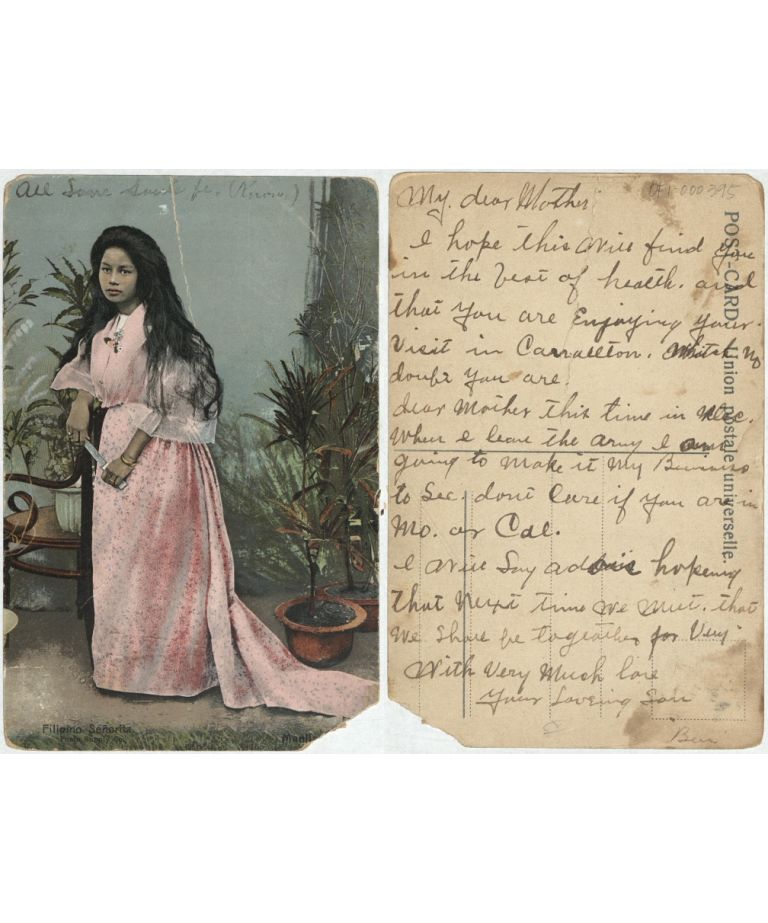 All Same
(Know.)
Filipino Señorita.
Photo Supply Co.
Manil
PI-000395
My. dear Mother
I hope this Will find you
in the best of health. and
that you are Enjoying your.
Visit in Carrollton. Which No
doubt you are.
dear Mother this time in Dec.
When I leave the army I am
going to Make it My Business
to See. dont Care if you are in
Mo. or Cal.
I Will Say adois hopeing
that Next time We Meet. that
We Shall be togeather for Very
With Very Much love
Your Loveing Son
Ben
POST-CARD. Union Postale universelle.